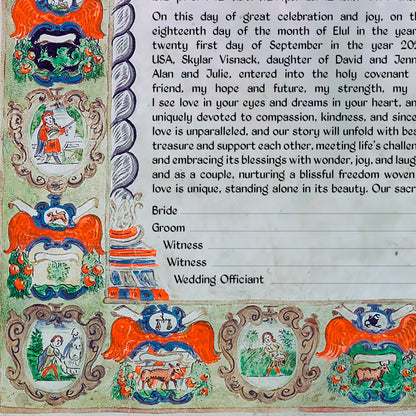 On this day of great celebration and joy, on th
eighteenth day of the month of Elul in the year
twenty first day of September in the year 20
USA, Skylar Visnack, daughter of David and Jenn
Alan and Julie, entered into the holy covenant
friend, my hope and future, my strength, my
I see love in your eyes and dreams in your heart, an
uniquely devoted to compassion, kindness, and since
love is unparalleled, and our story will unfold with bea
treasure and support each other, meeting life's challen
and embracing its blessings with wonder, joy, and laug
and as a couple, nurturing a blissful freedom woven
love is unique, standing alone in its beauty. Our sacr
Bride
Groom
Witness
Witness
Wedding Officiant